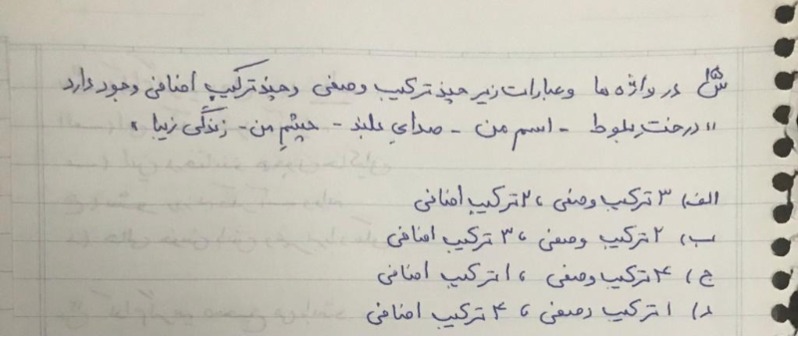 س۱۵ در واژه ها و عبارات زیر چند ترکیب وصفی و چند ترکیب اضافی وجود دارد
"درختِ بلوط - اسم من - صدایِ بلند - چشمِ من - زندگی زیبا"
الف) ۳ ترکیب وصفی ، ۲ ترکیب اضافی
ب) ۲ ترکیب وصفی ، ۳ ترکیب اضافی
ج) ۴ ترکیب وصفی ، ۱ ترکیب اضافی
د) ۱ ترکیب وصفی ، ۴ ترکیب اضافی